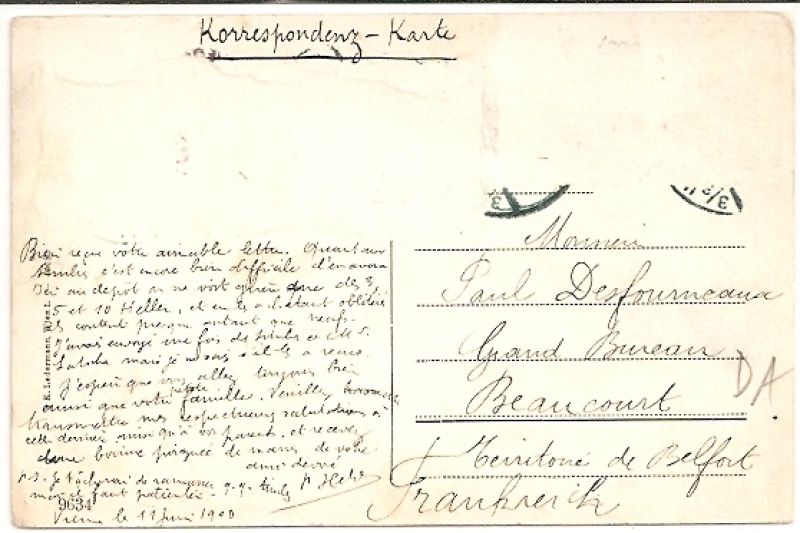 Korrespondenz-Karte
Bien reçu votre aimable lettre. Quant aux
timbres c'est encore bien difficile d'en avoir
Ici au dépôt on ne voit guère que des 3,
5 et 10 Heller, et en les achetant oblitérés
ils content presque autant que neufs.
J'avais envoyé une fois des timbres à
mais je ne sais s'il les a reçus.
J'espère que vous allez toujours bien
ainsi que votre petite famille. Veuillez
transmettre mes respectueuses salutations à
cette dernière ainsi qu'à vos parents, et recevez
une bonne poignée de mains de votre
ami dévoué
P.S. Je tâcherai de ramasser q.q. timbres
mais il faut patienter
Vienne le 11 Juin 1900
9634
K. Ledermann, Wien I.
Monsieur
Paul Desfourneaux
Grand Bureau
Beaucourt
Territoire de Belfort
Frankreich
DA